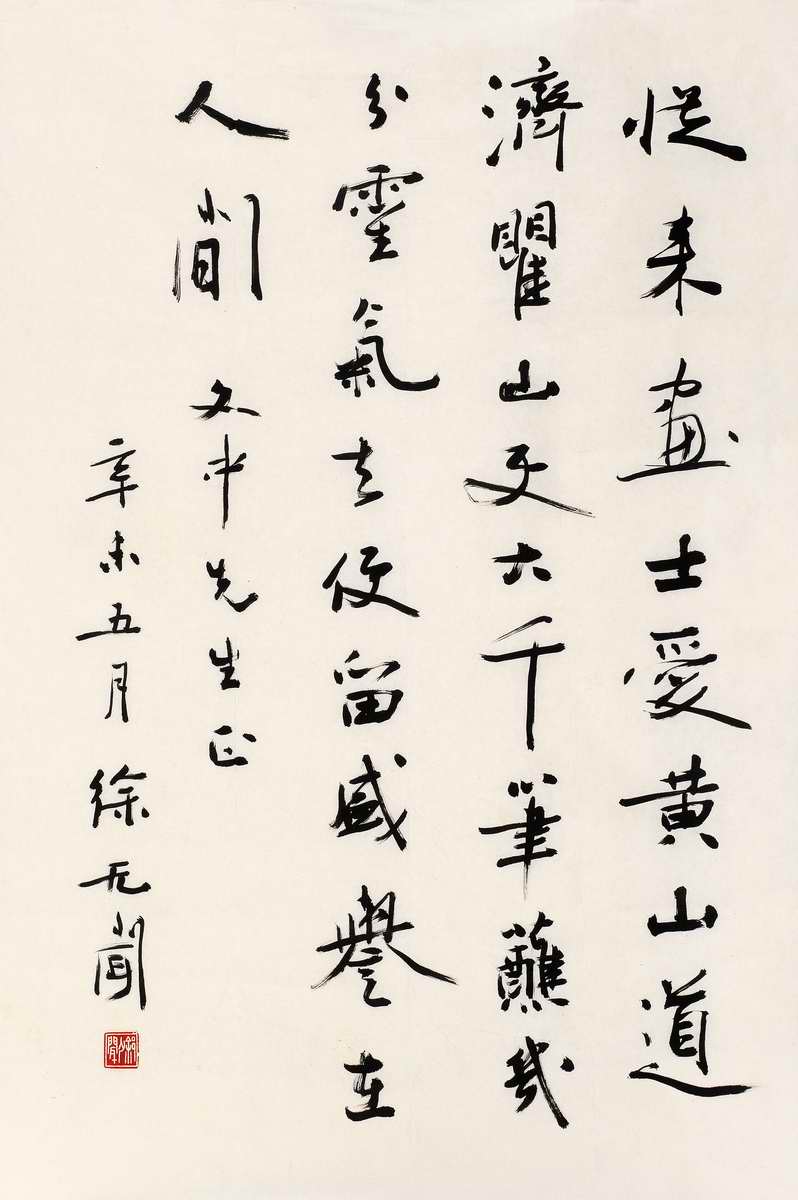 從来畫士愛黃山道
濟瞿山更大千筆蘸幾
分靈氣去便留盛譽在
人間
文中先生正
辛未五月 徐无聞